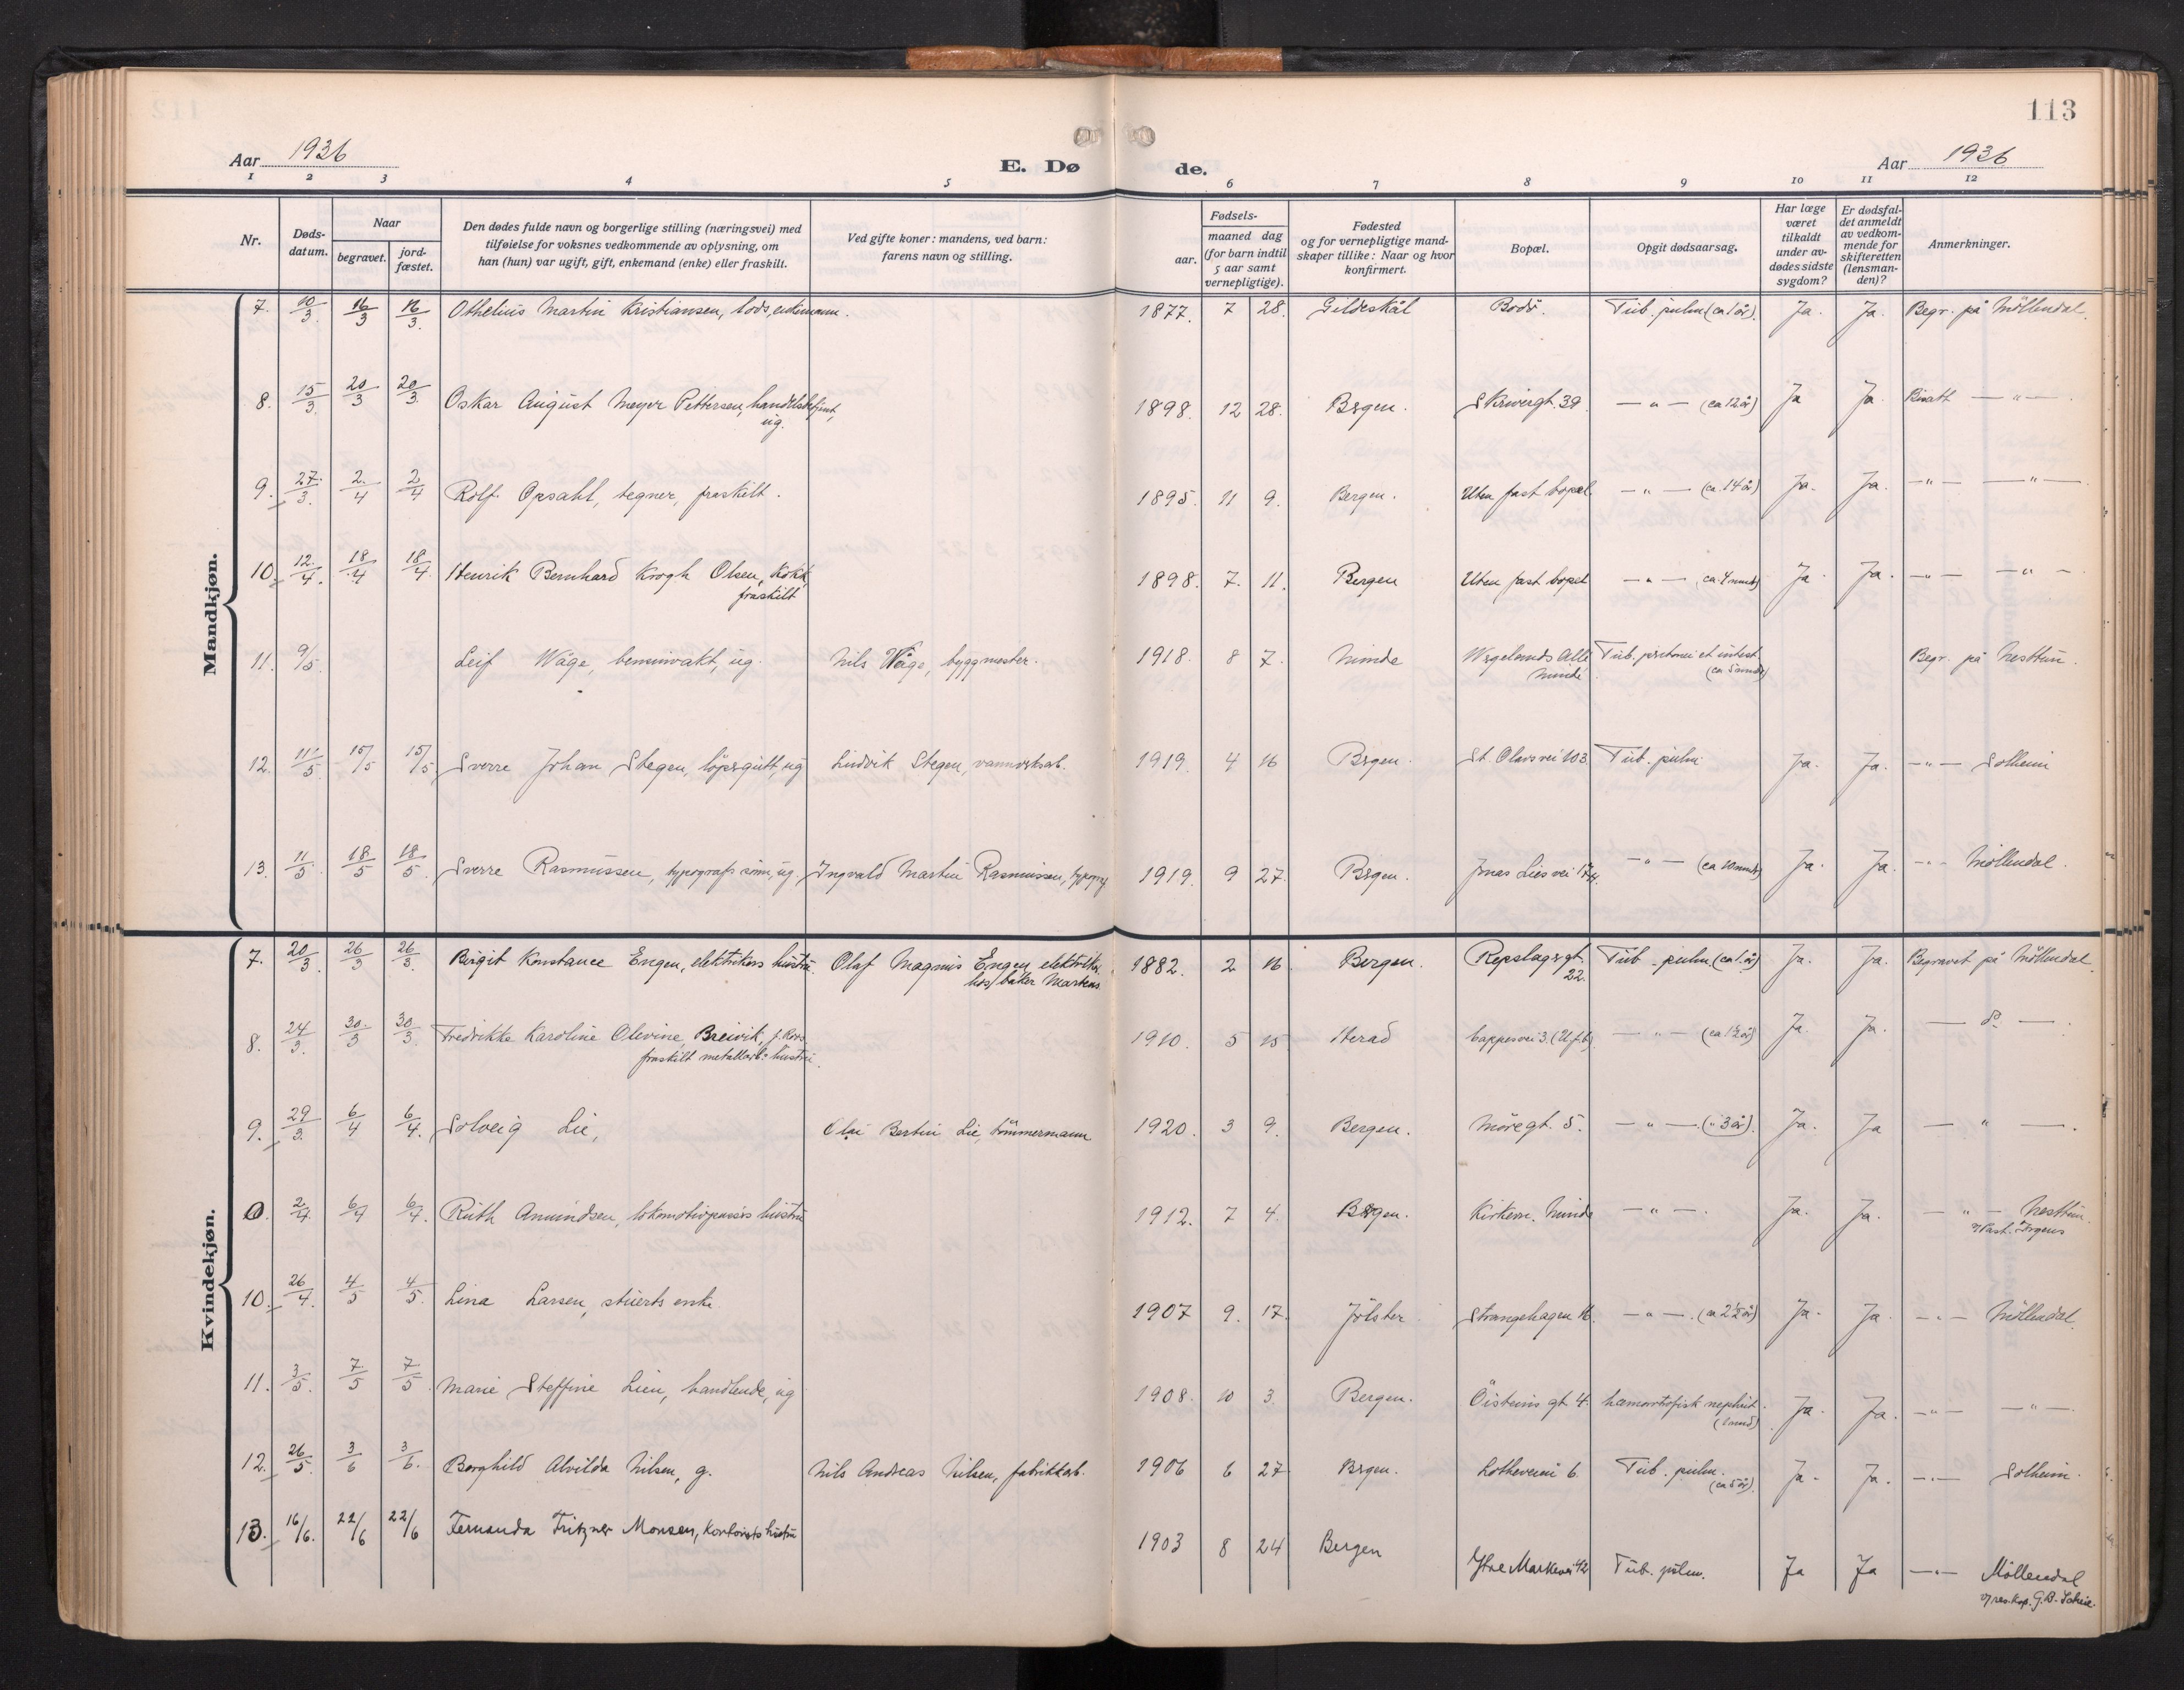 113
Aar 1936
E. Dø de.
Aar 1936
1 2 3 4 5 6 7 8 9 10 11 12
Nr.
Døds-
datum.
Naar
begravet.
jord-
fæstet.
Den dødes fulde navn og borgerlige stilling (næringsvei) med
tilføielse for voksnes vedkommende av oplysning, om
han (hun) var ugift, gift, enkemand (enke) eller fraskilt.
Ved gifte koner: mandens, ved barn:
farens navn og stilling.
Fødsels-
aar.
maaned dag
(for barn indtil
5 aar samt
vernepligtige).
Fødested
og for vernepligtige mand-
skaper tillike: Naar og hvor
konfirmert.
Bopæl.
Opgit dødsaarsag.
Har læge
været
tilkaldt
under av-
dødes sidste
sygdom?
Er dødsfal-
det anmeldt
av vedkom-
mende for
skifteretten
(lensman-
den)?
Anmerkninger.
Mandkjøn.
7. 10/3. 16/3 16/3. Othelius Martin Kristiansen, lods, enkemann. 1877. 7 28. Gildeskål Bodö. Tub. pulm (ca 1 år). Ja. Ja. Begr. på Möllendal.
8. 15/3. 20/3 20/3. Oskar August Meyer Pettersen, handelsbetjent,
ug. 1898. 12 28. Bergen. Skivergt. 39. — " — (ca 12 år) Ja Ja. — " — .
9. 27/3. 2/4 2/4 Rolf Opsahl, tegner, fraskilt. 1895. 11 9. Bergen. Uten fast bopel. — " — (ca. 14 år) Ja. Ja. — " — — " —
10. 12/4. 18/4 18/4. Henrik Bernhard Krogh Olsen, kokk,
fraskilt 1898. 7. 11. Bergen Uten fast bopel — " — (ca. 4 mnd) Ja. Ja. — " — — " —
11. 9/5. Leif Wåge, bensinvakt, ug. Nils Wåge, byggmester. 1918. 8 7. Minde Wergelands Allé
Minde. Tub. peritonei et intest.
(ca 5 mndr) Begr. på Nesttun.
12. 11/5 15/5 15/5. Sverre Johan Stegen, löpegutt, ug Ludvik Stegen, vannverksarb. 1919. 4 16 Bergen. St. Olavs vei 103. Tub. pulm. Ja. Ja. — " — Solheim
13. 11/5. 18/5 18/5. Sverre Rasmussen, typografs sönn, ug. Ingvald Martin Rasmussen, typogr. 1919. 9 27. Bergen. Jonas Lies vei — " — (ca 10 mndr) Ja. Ja. — " — Möllendal.
Kvindekjøn.
7. 20/3. 26/3 26/3. Birgit Konstance Engen, elektrikers hustru. Olaf Magnus Engen elektriker
hos baker Martens. 1882. 2 16. Bergen. Repslagergt.
22. Tub. pulm (ca 1 år) Ja. Ja. Begravet på Möllendal.
8. 24/3. 30/3 30/3. Fredrikke Karoline Olevine Breivik,
fraskilt metallarb. hustru. 1910. 5 15. Herad (ca 1½ år) Ja. Ja. — do — .
9. 29/3. 6/4 6/4. Solveig Lie, Olai Bertin Lie, tömmermann 1920. 3 9. Bergen. Möregt. 5. — " — (" 3 år). Ja. Ja — " — .
0. 2/4 6/4 6/4. Ruth Amundsen, lokomotivpussers hustru 1912. 7 4. Bergen. Kirkevn. Minde — " — . Ja. Ja. — " — Nesttun.
10. 26/4. 4/5 4/5. Lina Larsen, stuerts enke 1907 9. 17. Jölster Strangehagen 16. — " — . (ca 2½ år) Ja. Ja. — " — Möllendal.
11. 3/5. 7/5 7/5. Marie Steffine Lien, handlende, ug 1908. 10 3. Bergen. Öisteins gt. 4. (1 mnd) Ja. Ja. — " — — " —
12. 26/5. 3/6 3/6. Borghild Alvilda Nilsen, g. Nils Andreas Nilsen, fabrikkarb. 1906 6 27 Bergen. Lotheveien 6. Tub. pulm.
(ca 5 år). Ja. Ja. — " — Solheim.
13. 16/6. 22/6 22/6 Fernanda Fritzner Monsen, kontorists hustru 1903 8 24 Bergen Ytre Markevei 42 Tub. pulm. Ja Ja — " — Möllendal